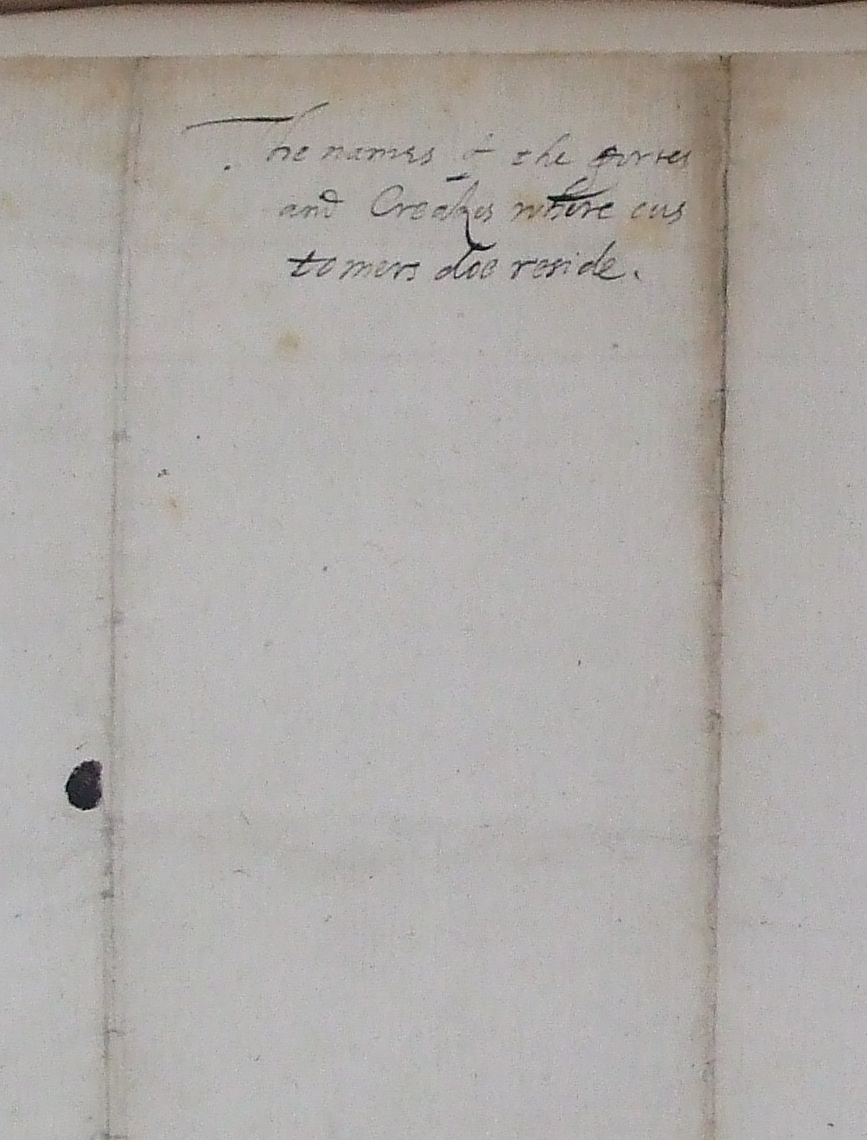 The names of the portes
and Creakes where cus
tomers doe reside.